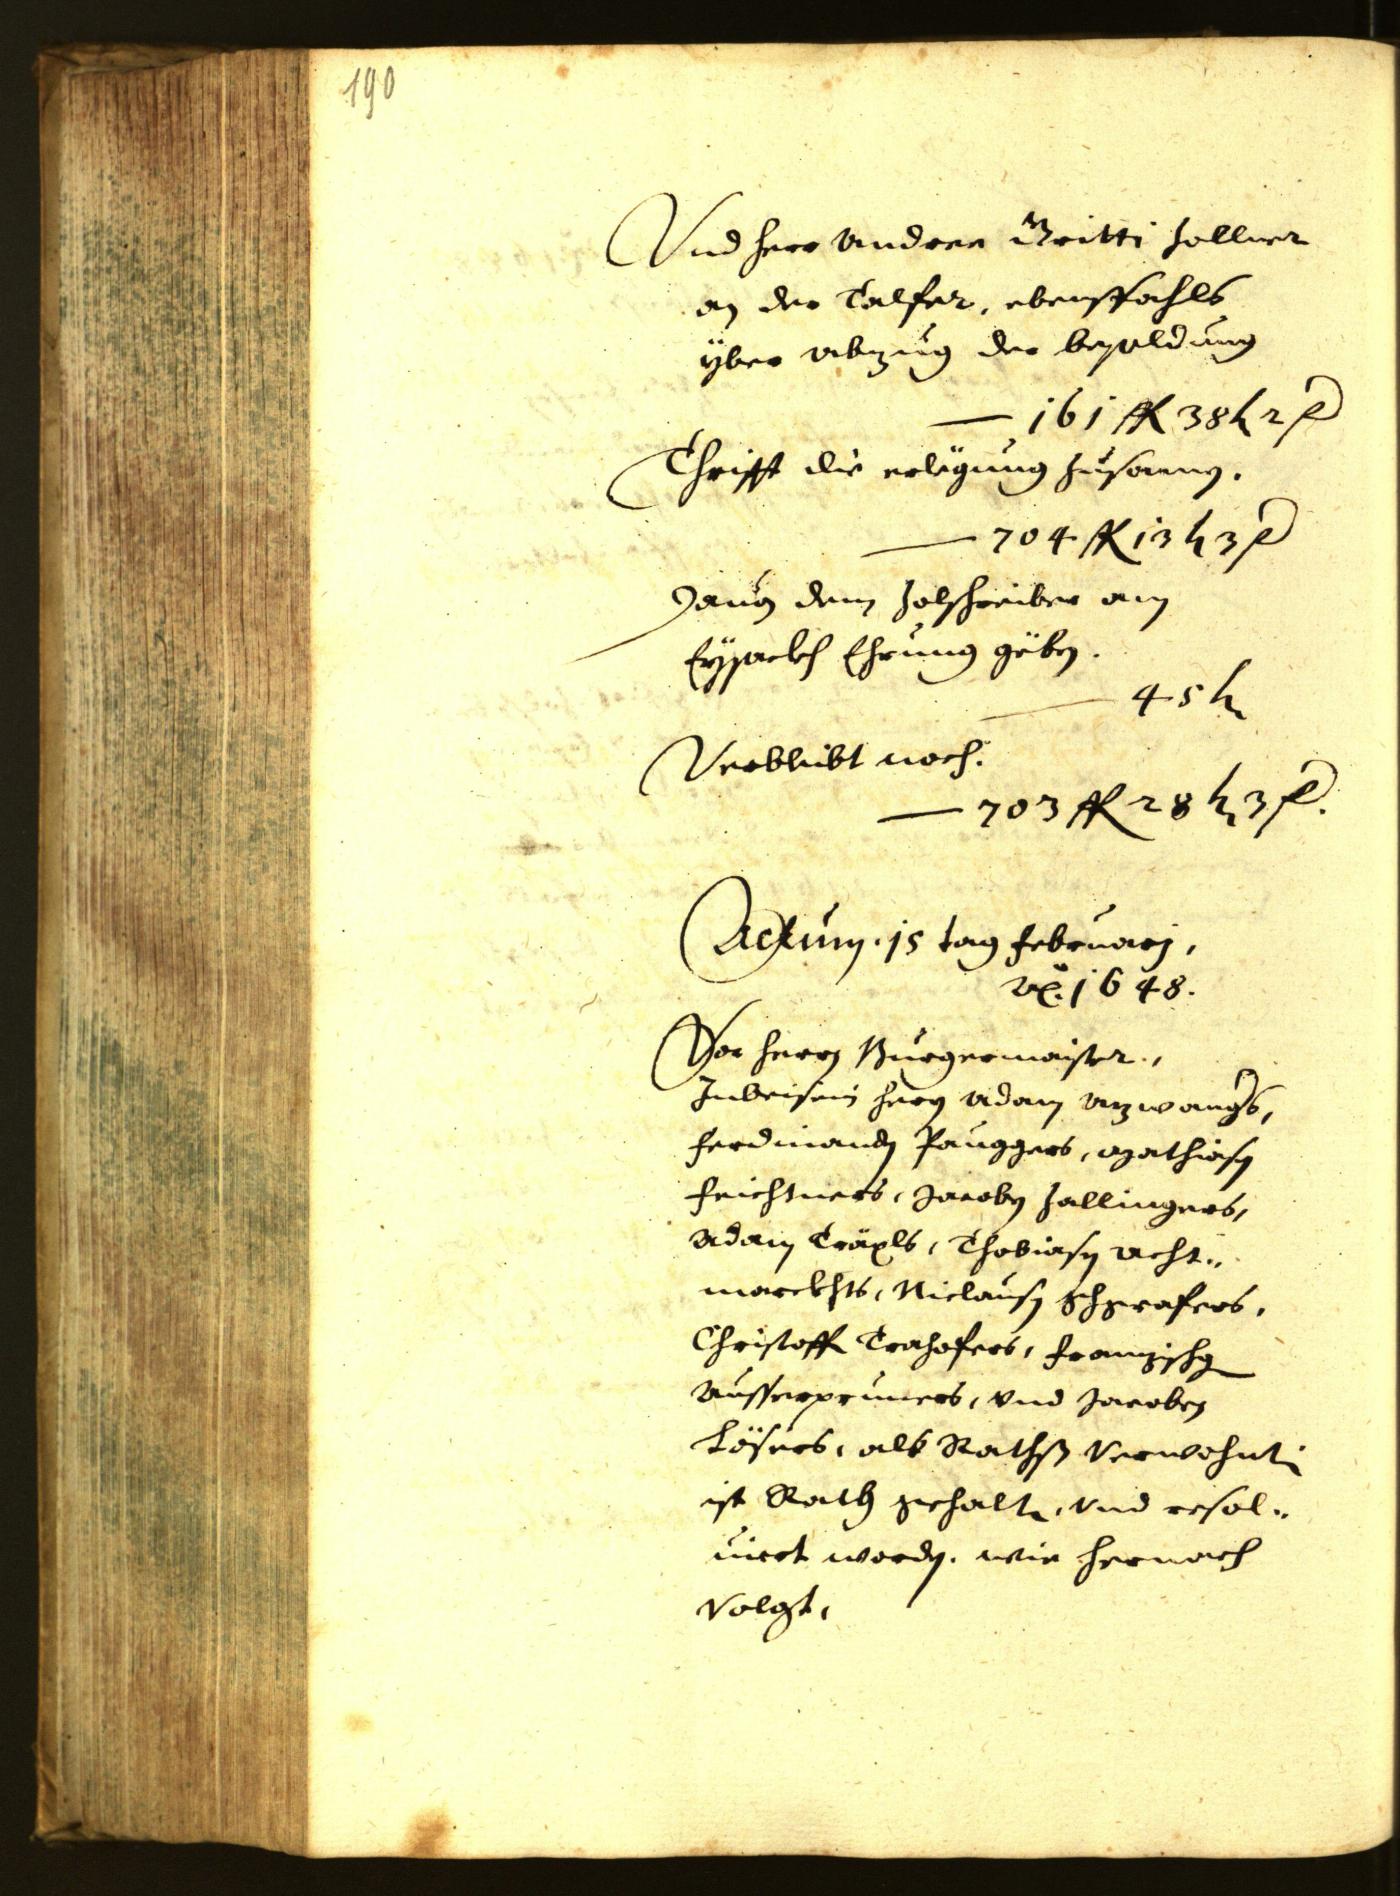 190
Vnd herr Andree Britti Zollner
an der Talfer, ebenffahls
yber abzug der besoldung
— 161 fl 38 kr 2 d
Thrifft die erlegung Zusamen.
— 704 fl 13 kr 3 d
Dauon dem Zolschreiber am
Eysackh Ehrung geben.
— 45 kr
Verbleibt noch.
— 703 fl 28 kr 3 d.
Actum. 15 tag Februarj,
Ao. 1648.
Vor herrn Burgermaister.,
Inbeisein herrn Adam Azwangers,
Ferdinandn Paurggers, Mathiasn
Feichtners, Jacobn Zallingers,
Adam Träxls, Thobiasn Acht„
marckhts, Niclausn Schgrafers,
Christoff Trahofers, Franzischgn
Ausserprunners, vnd Jacoben
Lösers, als Rathß verwohnte
ist Rath gehalten, vnd resol„
uiert worden. wie hernach
volgt,